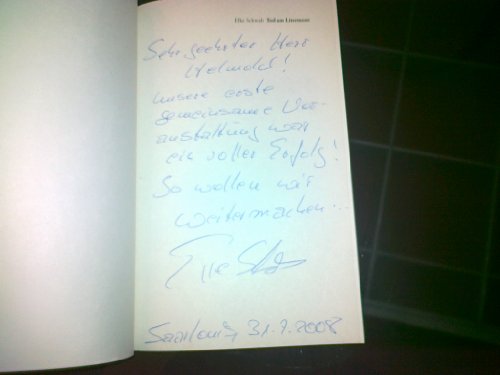 Elke Schwab Tod am Litermont
Sehr geehrter Herr
Helmold!
unsere erste
gemeinsame Ver-
anstaltung war
ein voller Erfolg!
So wollen wir
weitermachen...
Elke Schwab
Saarlouis, 31.7.2008